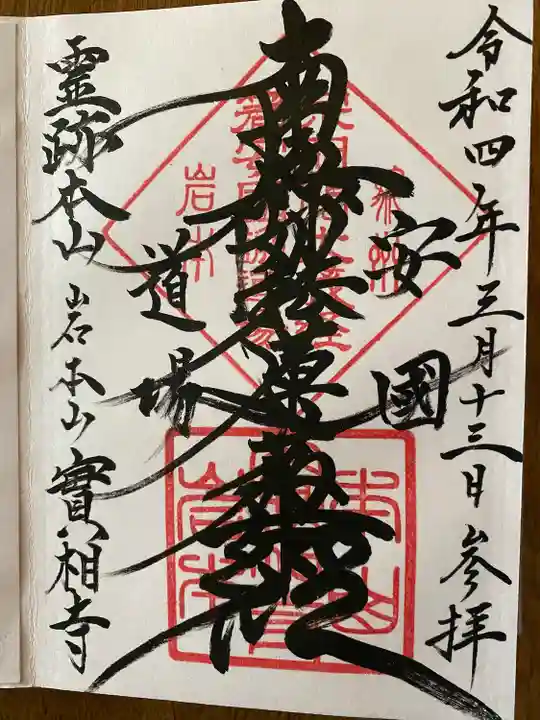 令和四年三月十三日 参拝
安國
南無妙法蓮華經
道場
霊跡本山 岩本山 實相寺
岩本